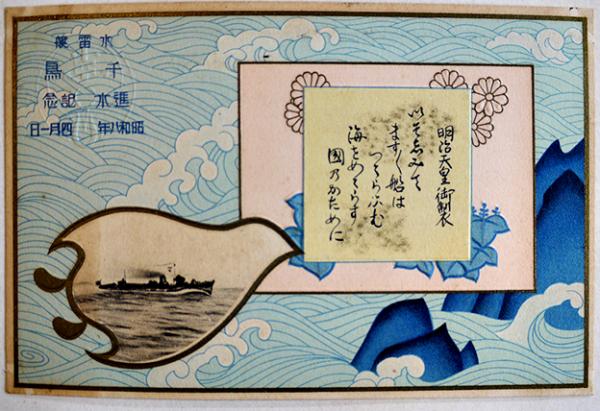 水雷艇
千鳥
進水記念
昭和八年四月一日
明治天皇御製
以そ志みて
ます〱船は
つくらなむ
海をめくらす
國乃かために